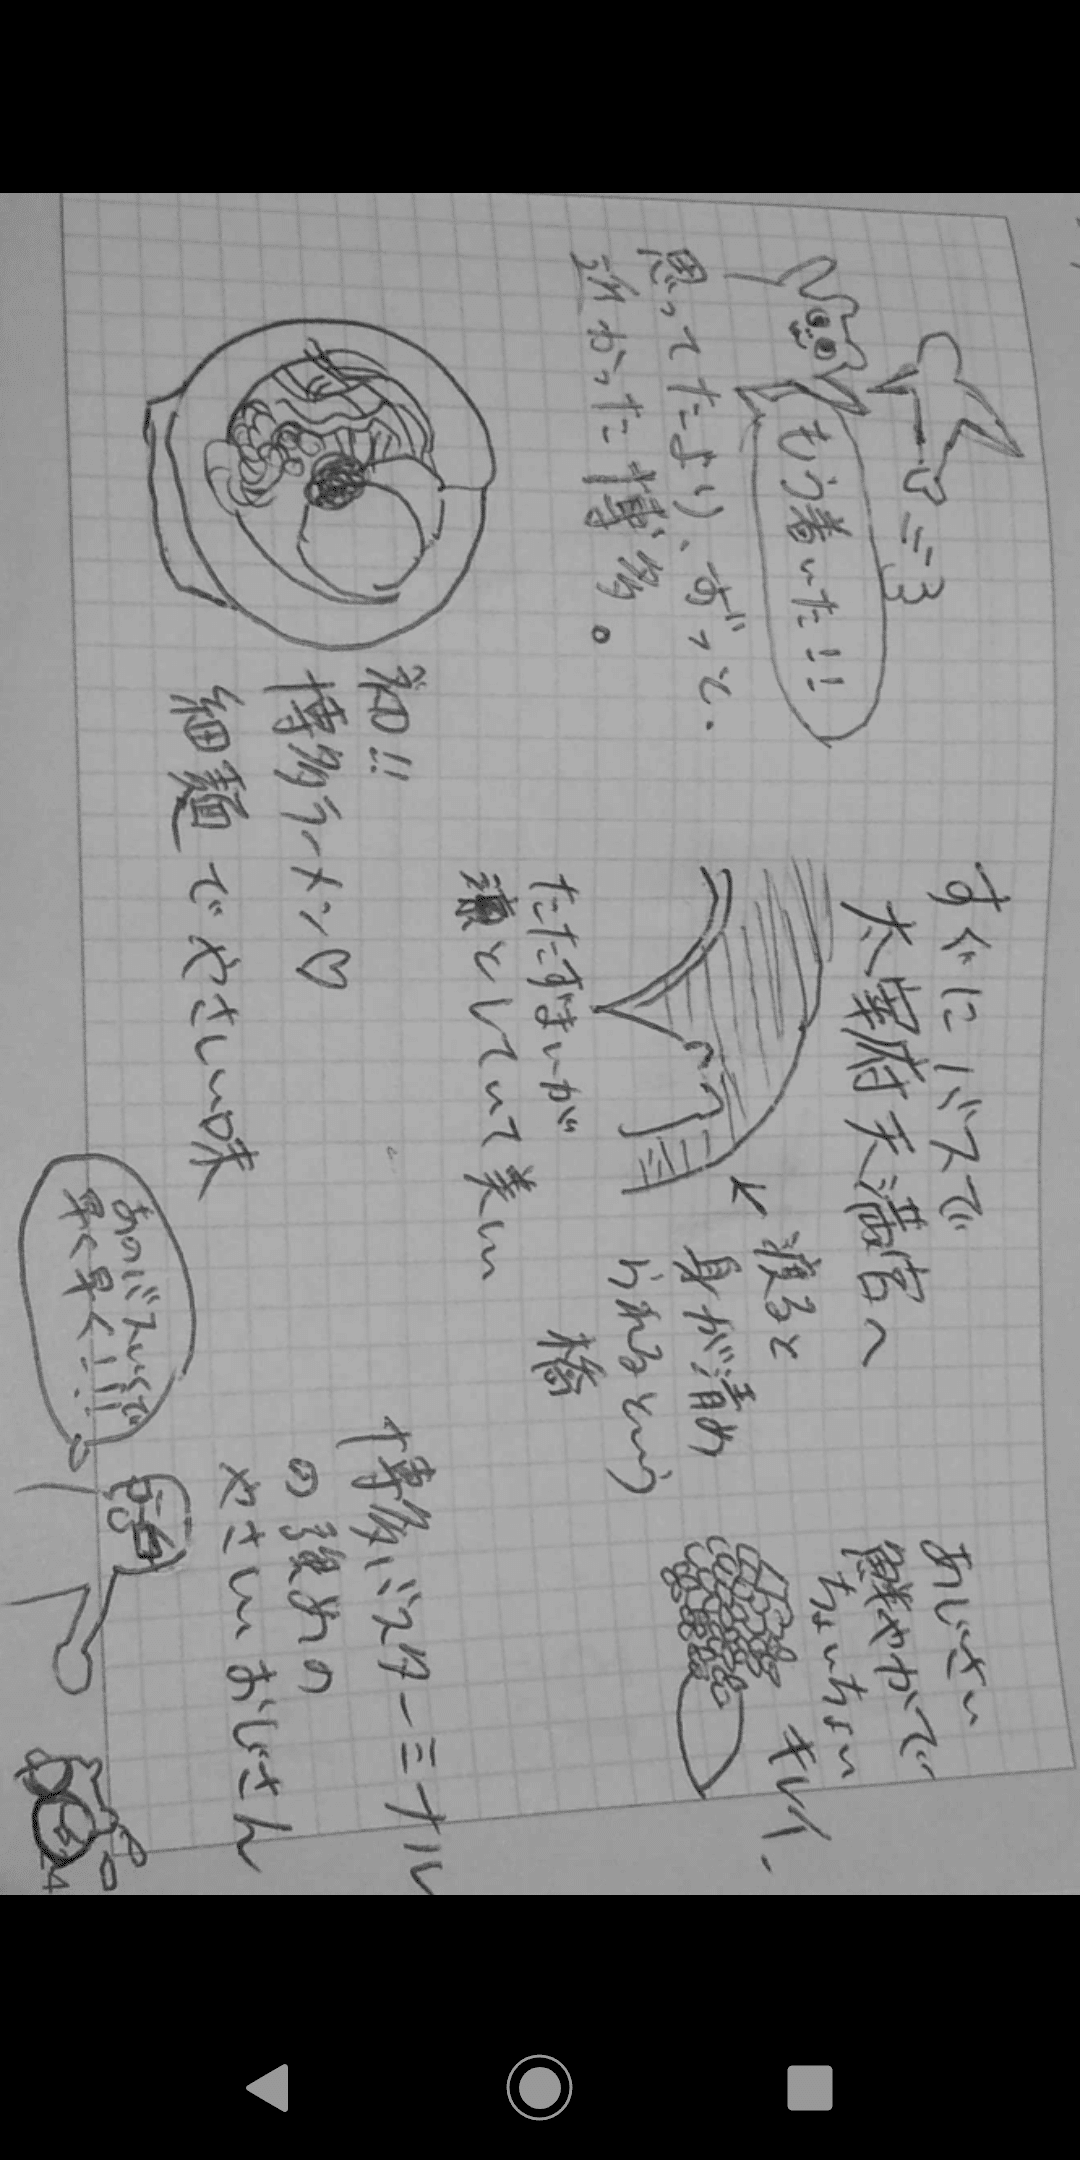 もう着いた!!
思ってたより、ずっと、
近かった博多。
初!!
博多ラーメン♡
細麺でやさしい味
すぐにバスで
太宰府天満宮へ
渡ると
身が清め
られるという
橋
たたずまいが
凛としていて美しい
あじさい
鮮やかで
ちょいちょい
キレイ、
博多バスターミナル
の強めの
やさしいおじさん
あのバスいくで
早く早く!!!